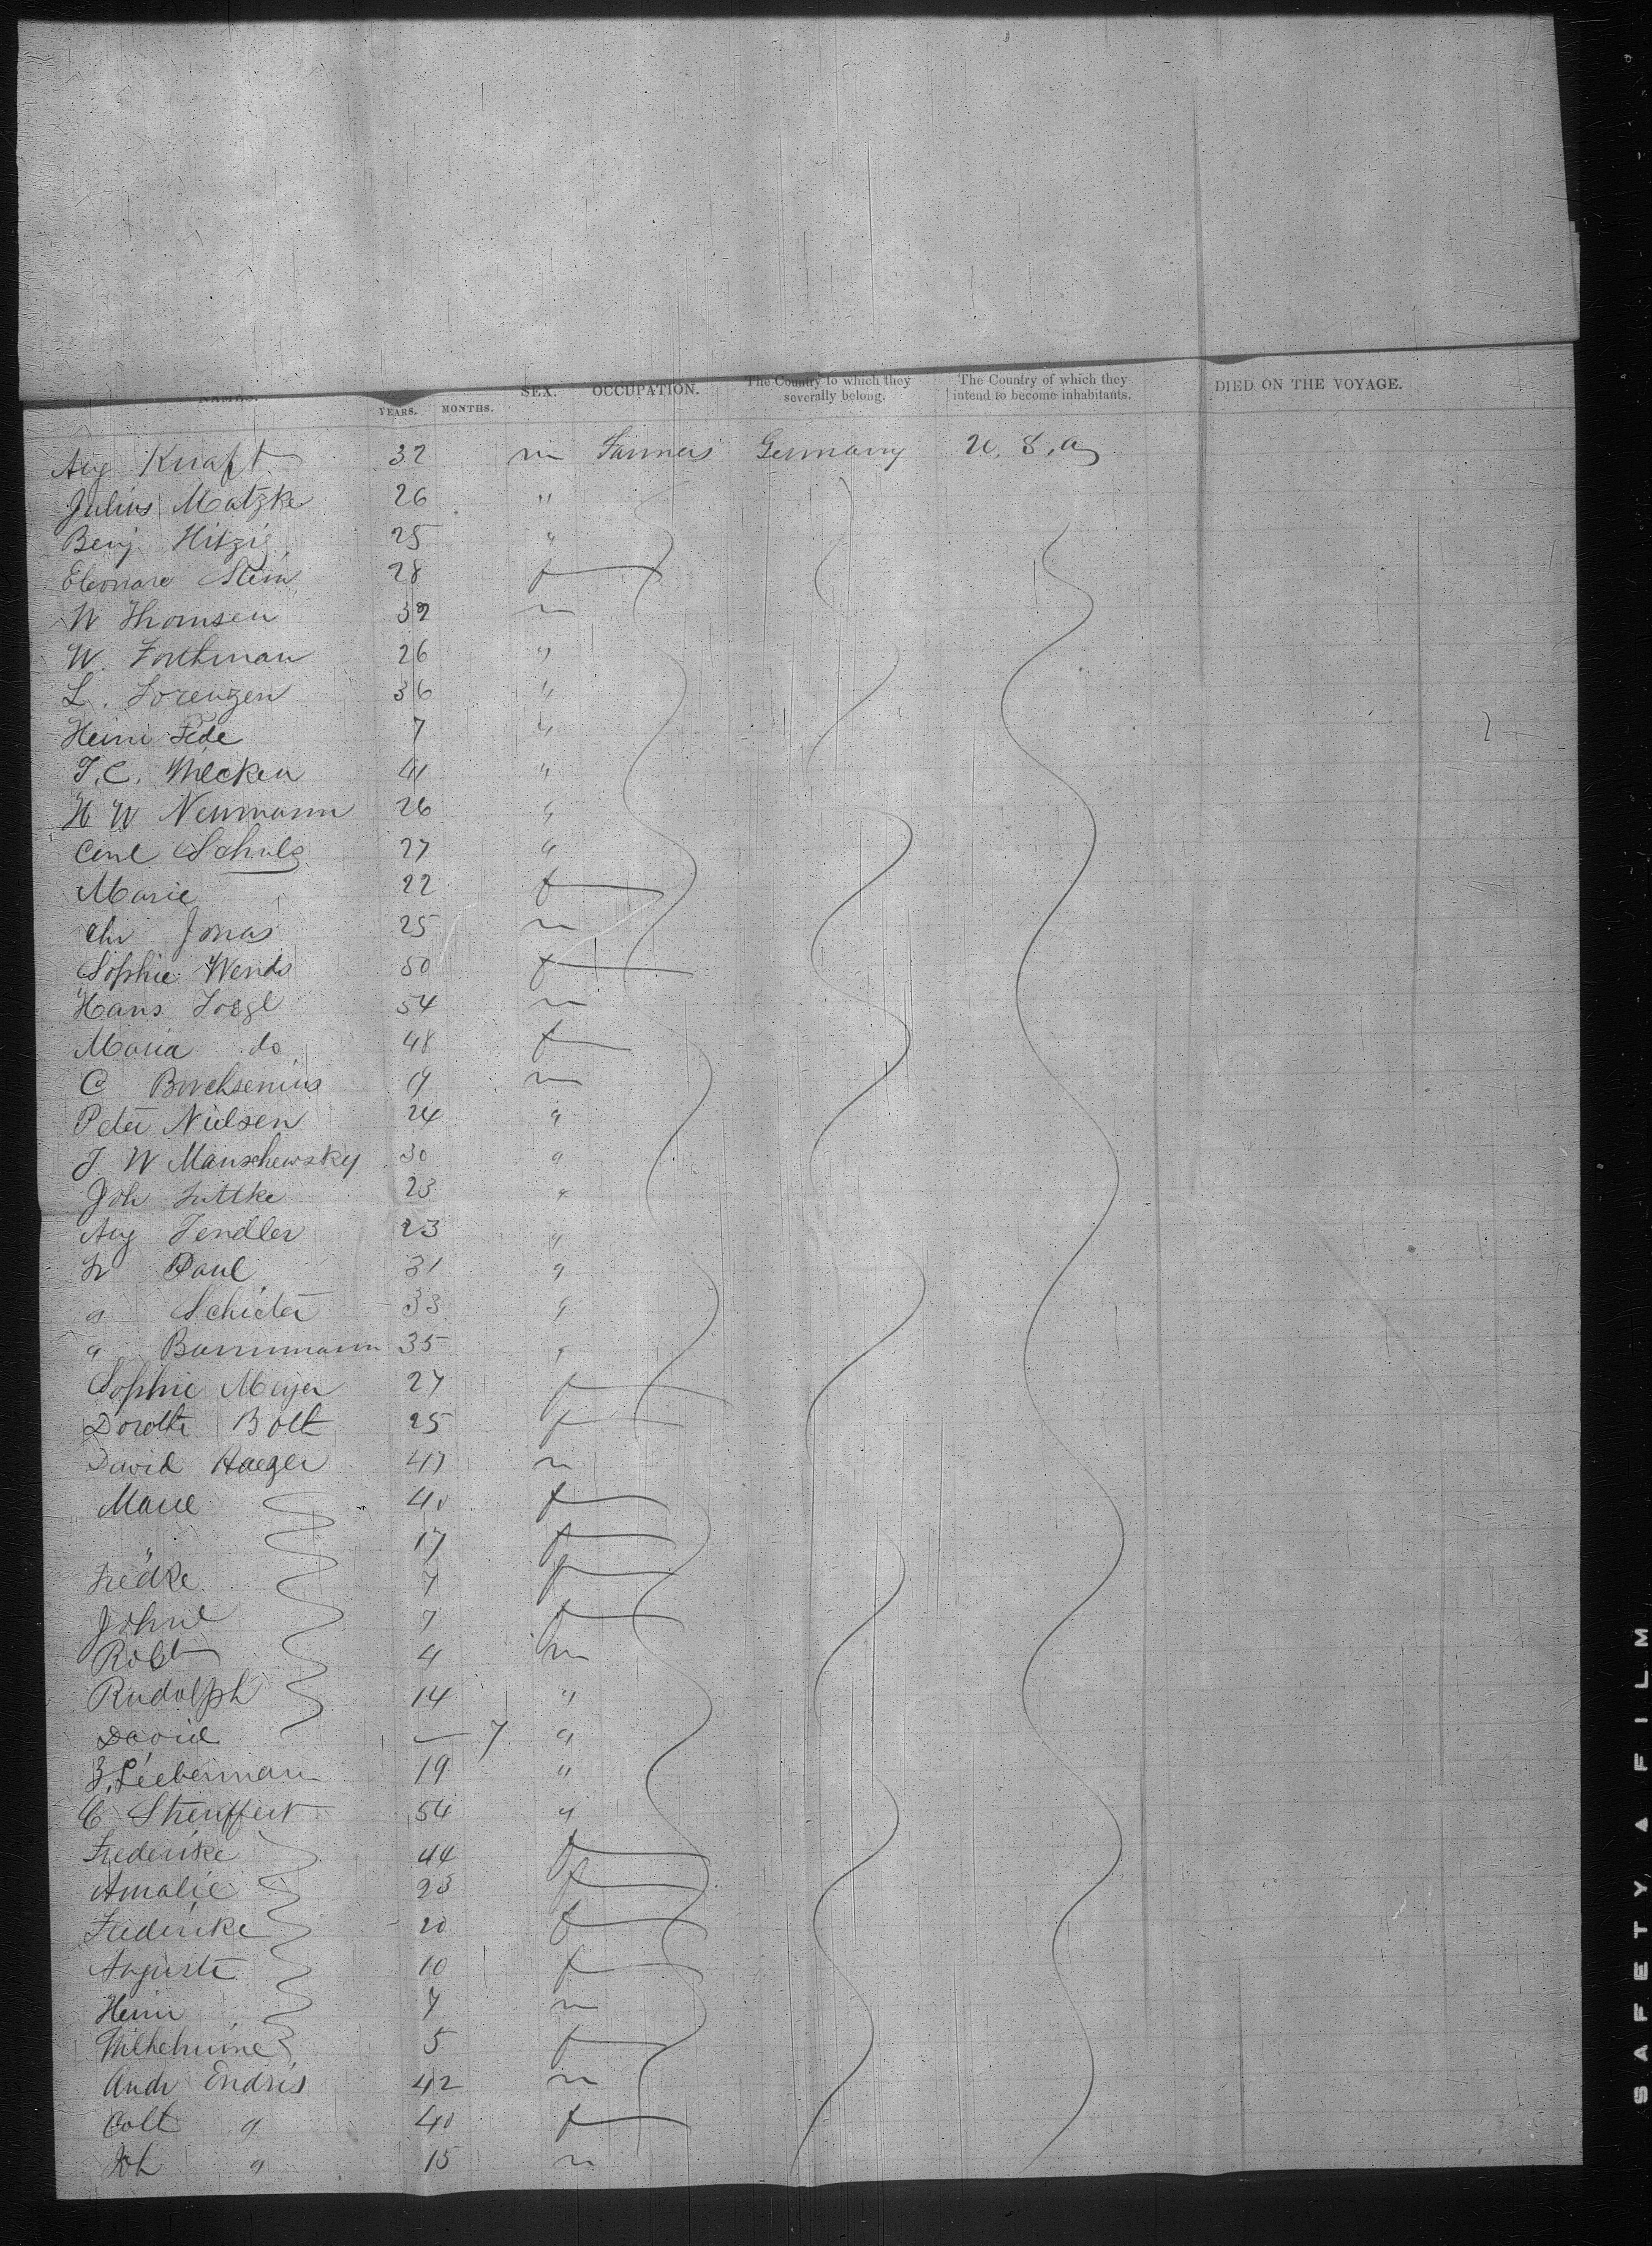 NAMES. YEARS. MONTHS. SEX. OCCUPATION. The Country to which they severally belong. The Country of which they intend to become inhabitants. DIED ON THE VOYAGE.
Aug Knaft 32 m Farmers Germany U. S. a
Julius Matzke 26 "
Benj Hitzig 25 "
Eleonare Stein 28 f
W Thomsen 32 m
W. Forthman 26 "
L. Lorenzen 36 "
Heinr Fide 7 "
T. C. Wilcken 41 "
H W Neumann 26 "
Carl Schulz 27 "
Marie 22 f
Chr Jonas 25 m
Sophie Wends 50 f
Hans 54 m
Maria do 48 f
C Borchsenius 19 m
Peter Nielsen 24 "
J W Manschewsky 30 "
Joh Luttke 23 "
Aug Tendler 23 "
Fr Paul 31 "
" Schieter 33 "
" Bammann 35 "
Sophie Meyer 27 f
Dorothe Bolt 25 f
David Haeger 47 m
Marie 40 f
" 17 f
Fredke 7 f
Johne 7 f
Robt 4 m
Rudolph 14 "
David — 7 "
Z. Lieberman 19 "
C Streuffert 54 "
Frederike 44 f
Amalie 23 f
Frederike 20 f
Auguste 10 f
Heinr 7 m
Wilhelmine 5 f
Andr Endris 42 m
Cath " 40 f
Joh " 15 m
SAFETY ▲ FILM